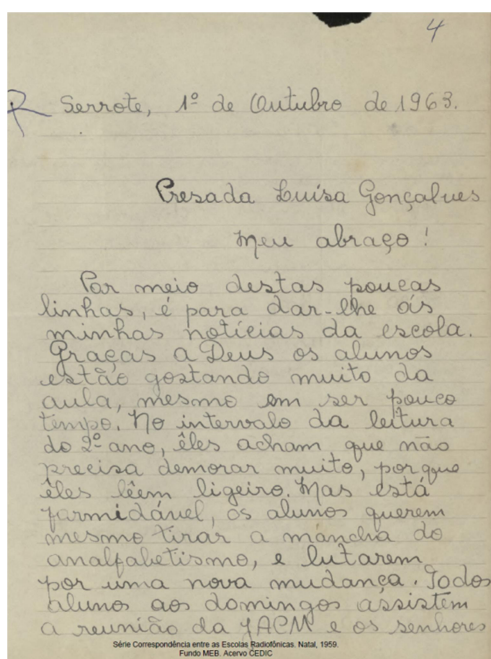 4
R Serrote, 1º de Outubro de 1963.
Presada Luisa Gonçalves
Meu abraço!
Por meio destas poucas
linhas, é para dar-lhe ás
minhas notícias da escola.
Graças a Deus os alunos
estão gostando muito da
aula, mesmo em ser pouco
tempo. No intervalo da leitura
do 2º ano, êles acham que não
precisa demorar muito, porque
êles lêem ligeiro. Mas está
formidável, os alunos querem
mesmo tirar a mancha do
analfabetismo, e lutarem
por uma nova mudança. Todos
alunos aos domingos assistem
a reunião da JACM e os senhores
Série Correspondência entre as Escolas Radiofônicas. Natal, 1959.
Fundo MEB. Acervo CEDIC